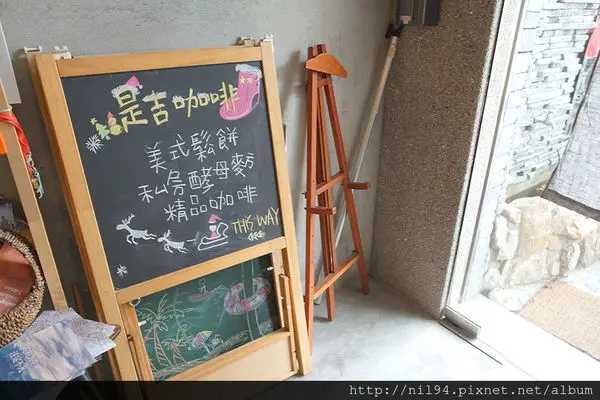 是吉咖啡
美式鬆餅
私房酵母麥方
精品咖啡
THIS WAY
http://nil94.pixnet.net/album